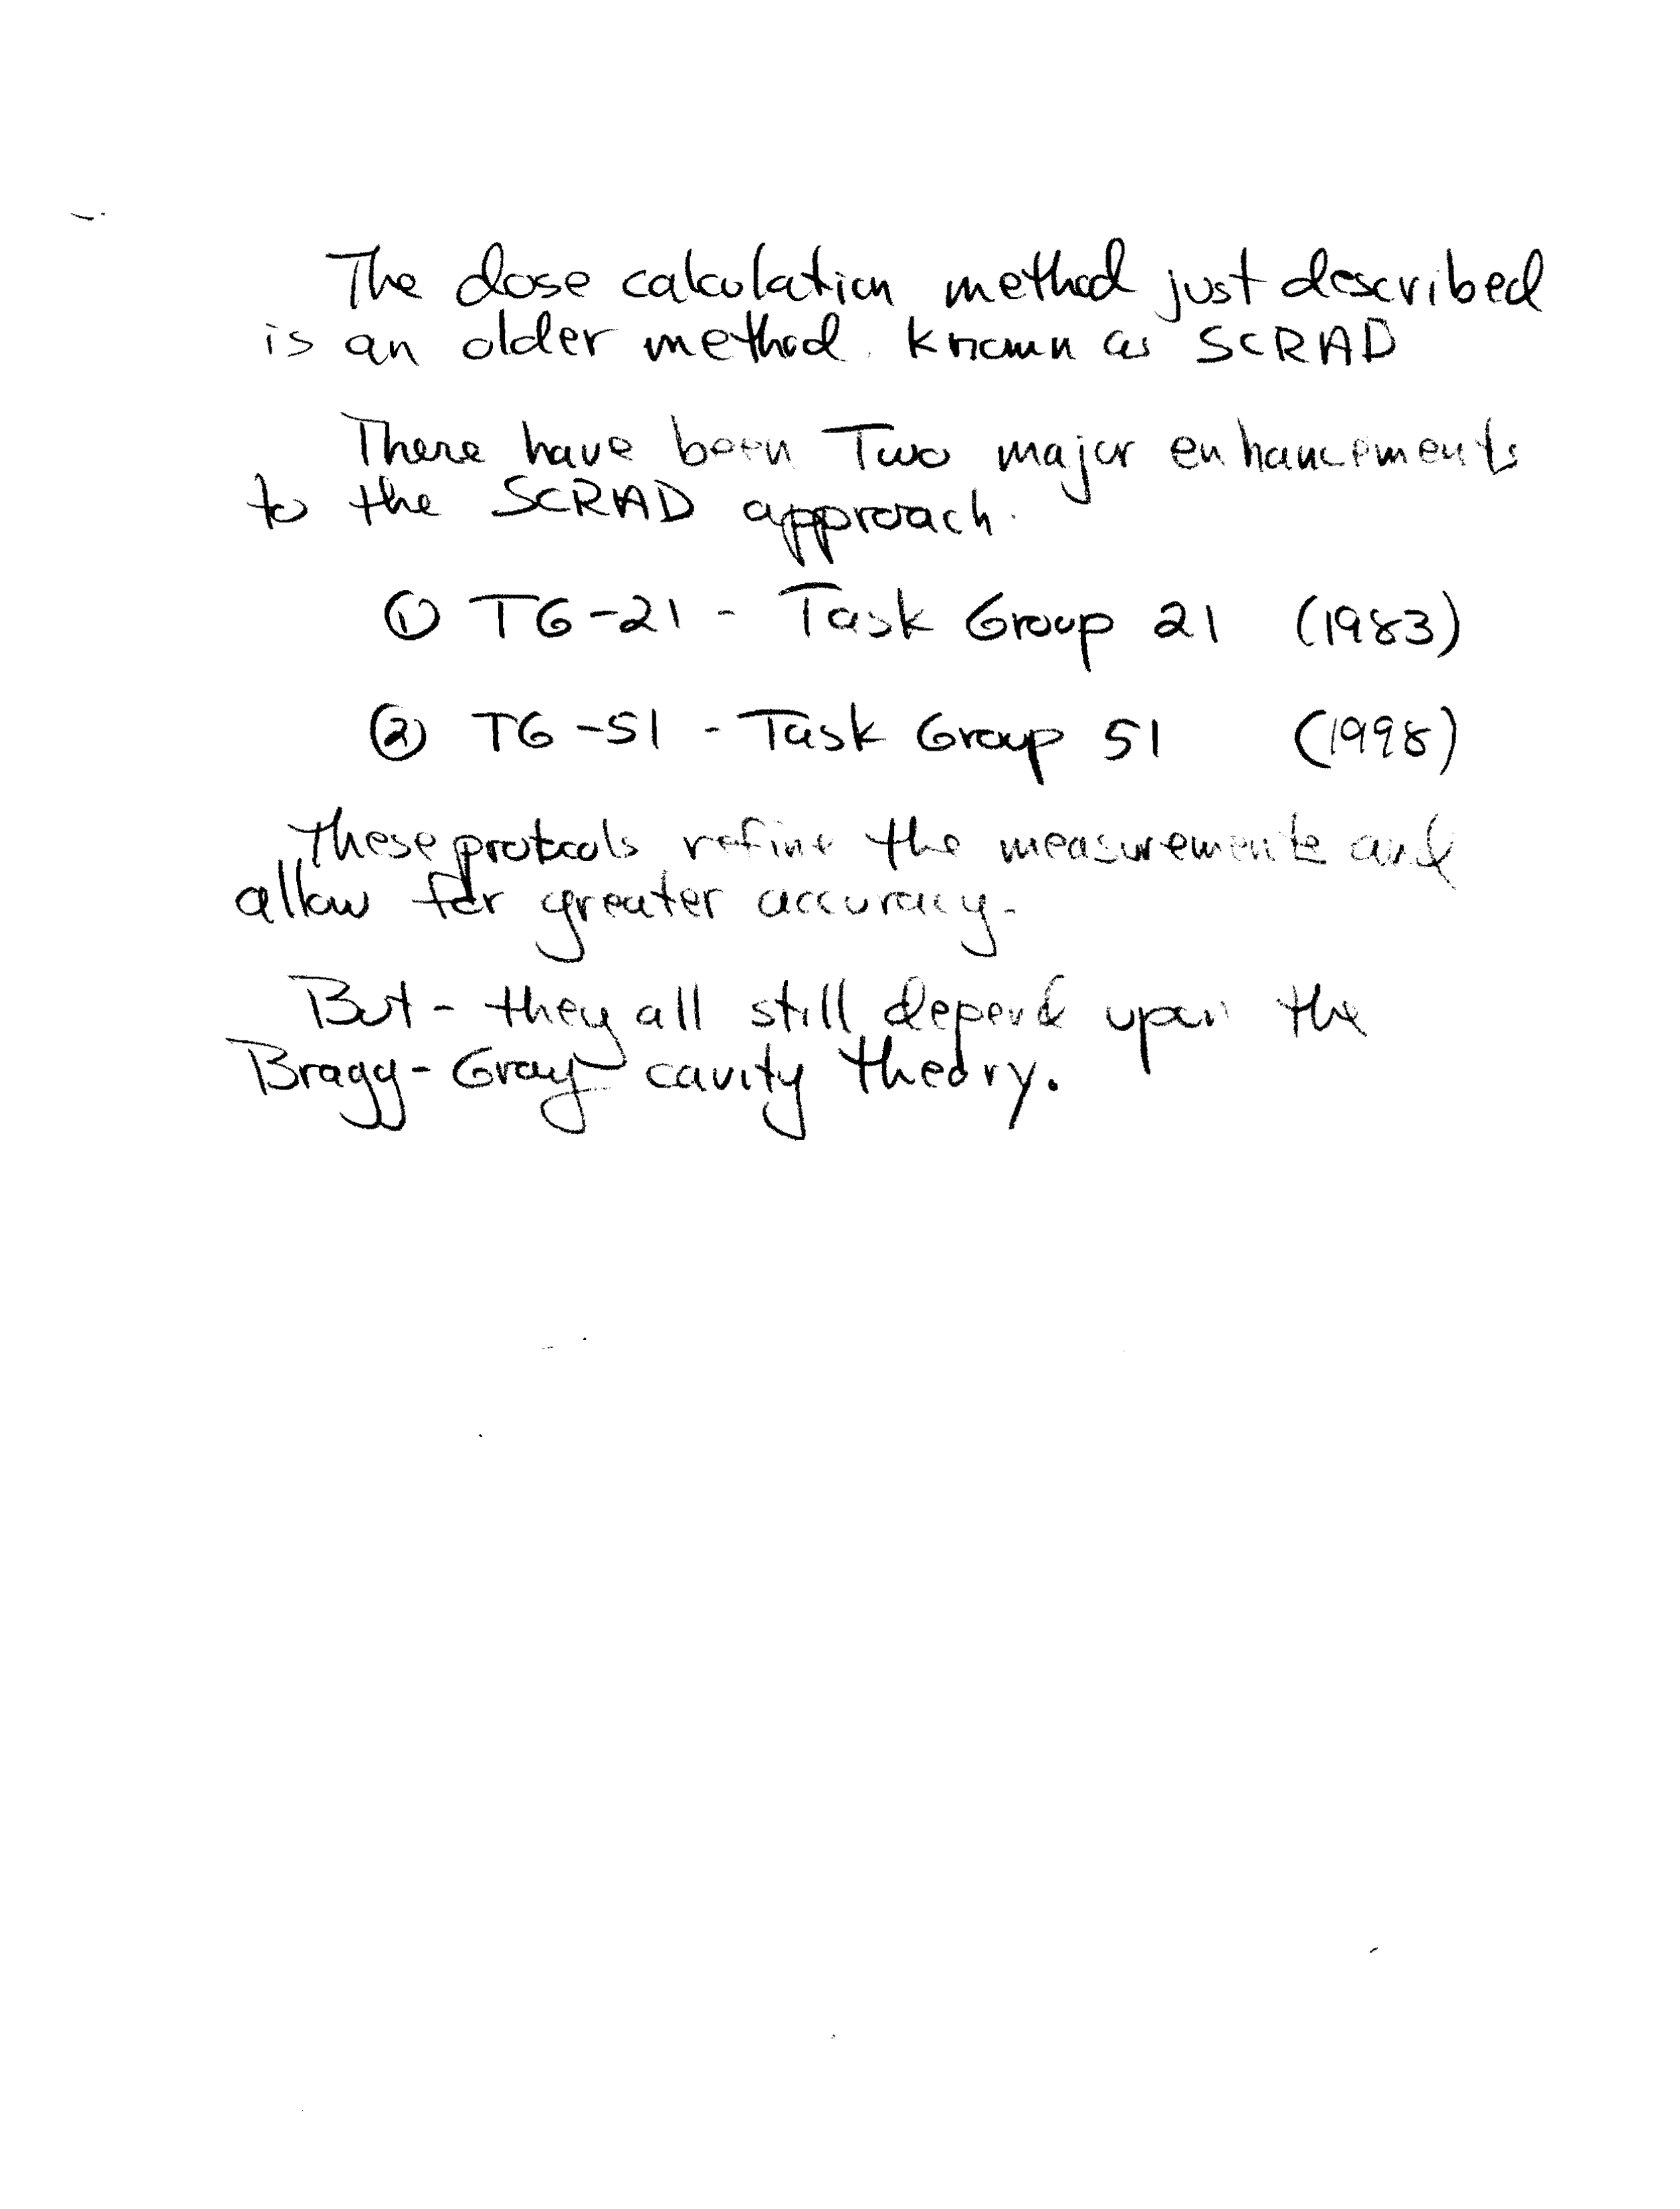 The dose calculation method just described
is an older method. known as SCRAD
There have been Two major enhancements
to the SCRAD approach.
① TG-21 - Task Group 21 (1983)
② TG-51 - Task Group 51 (1998)
These protocols refine the measurements and
allow for greater accuracy.
But - they all still depend upon the
Bragg-Gray cavity theory.